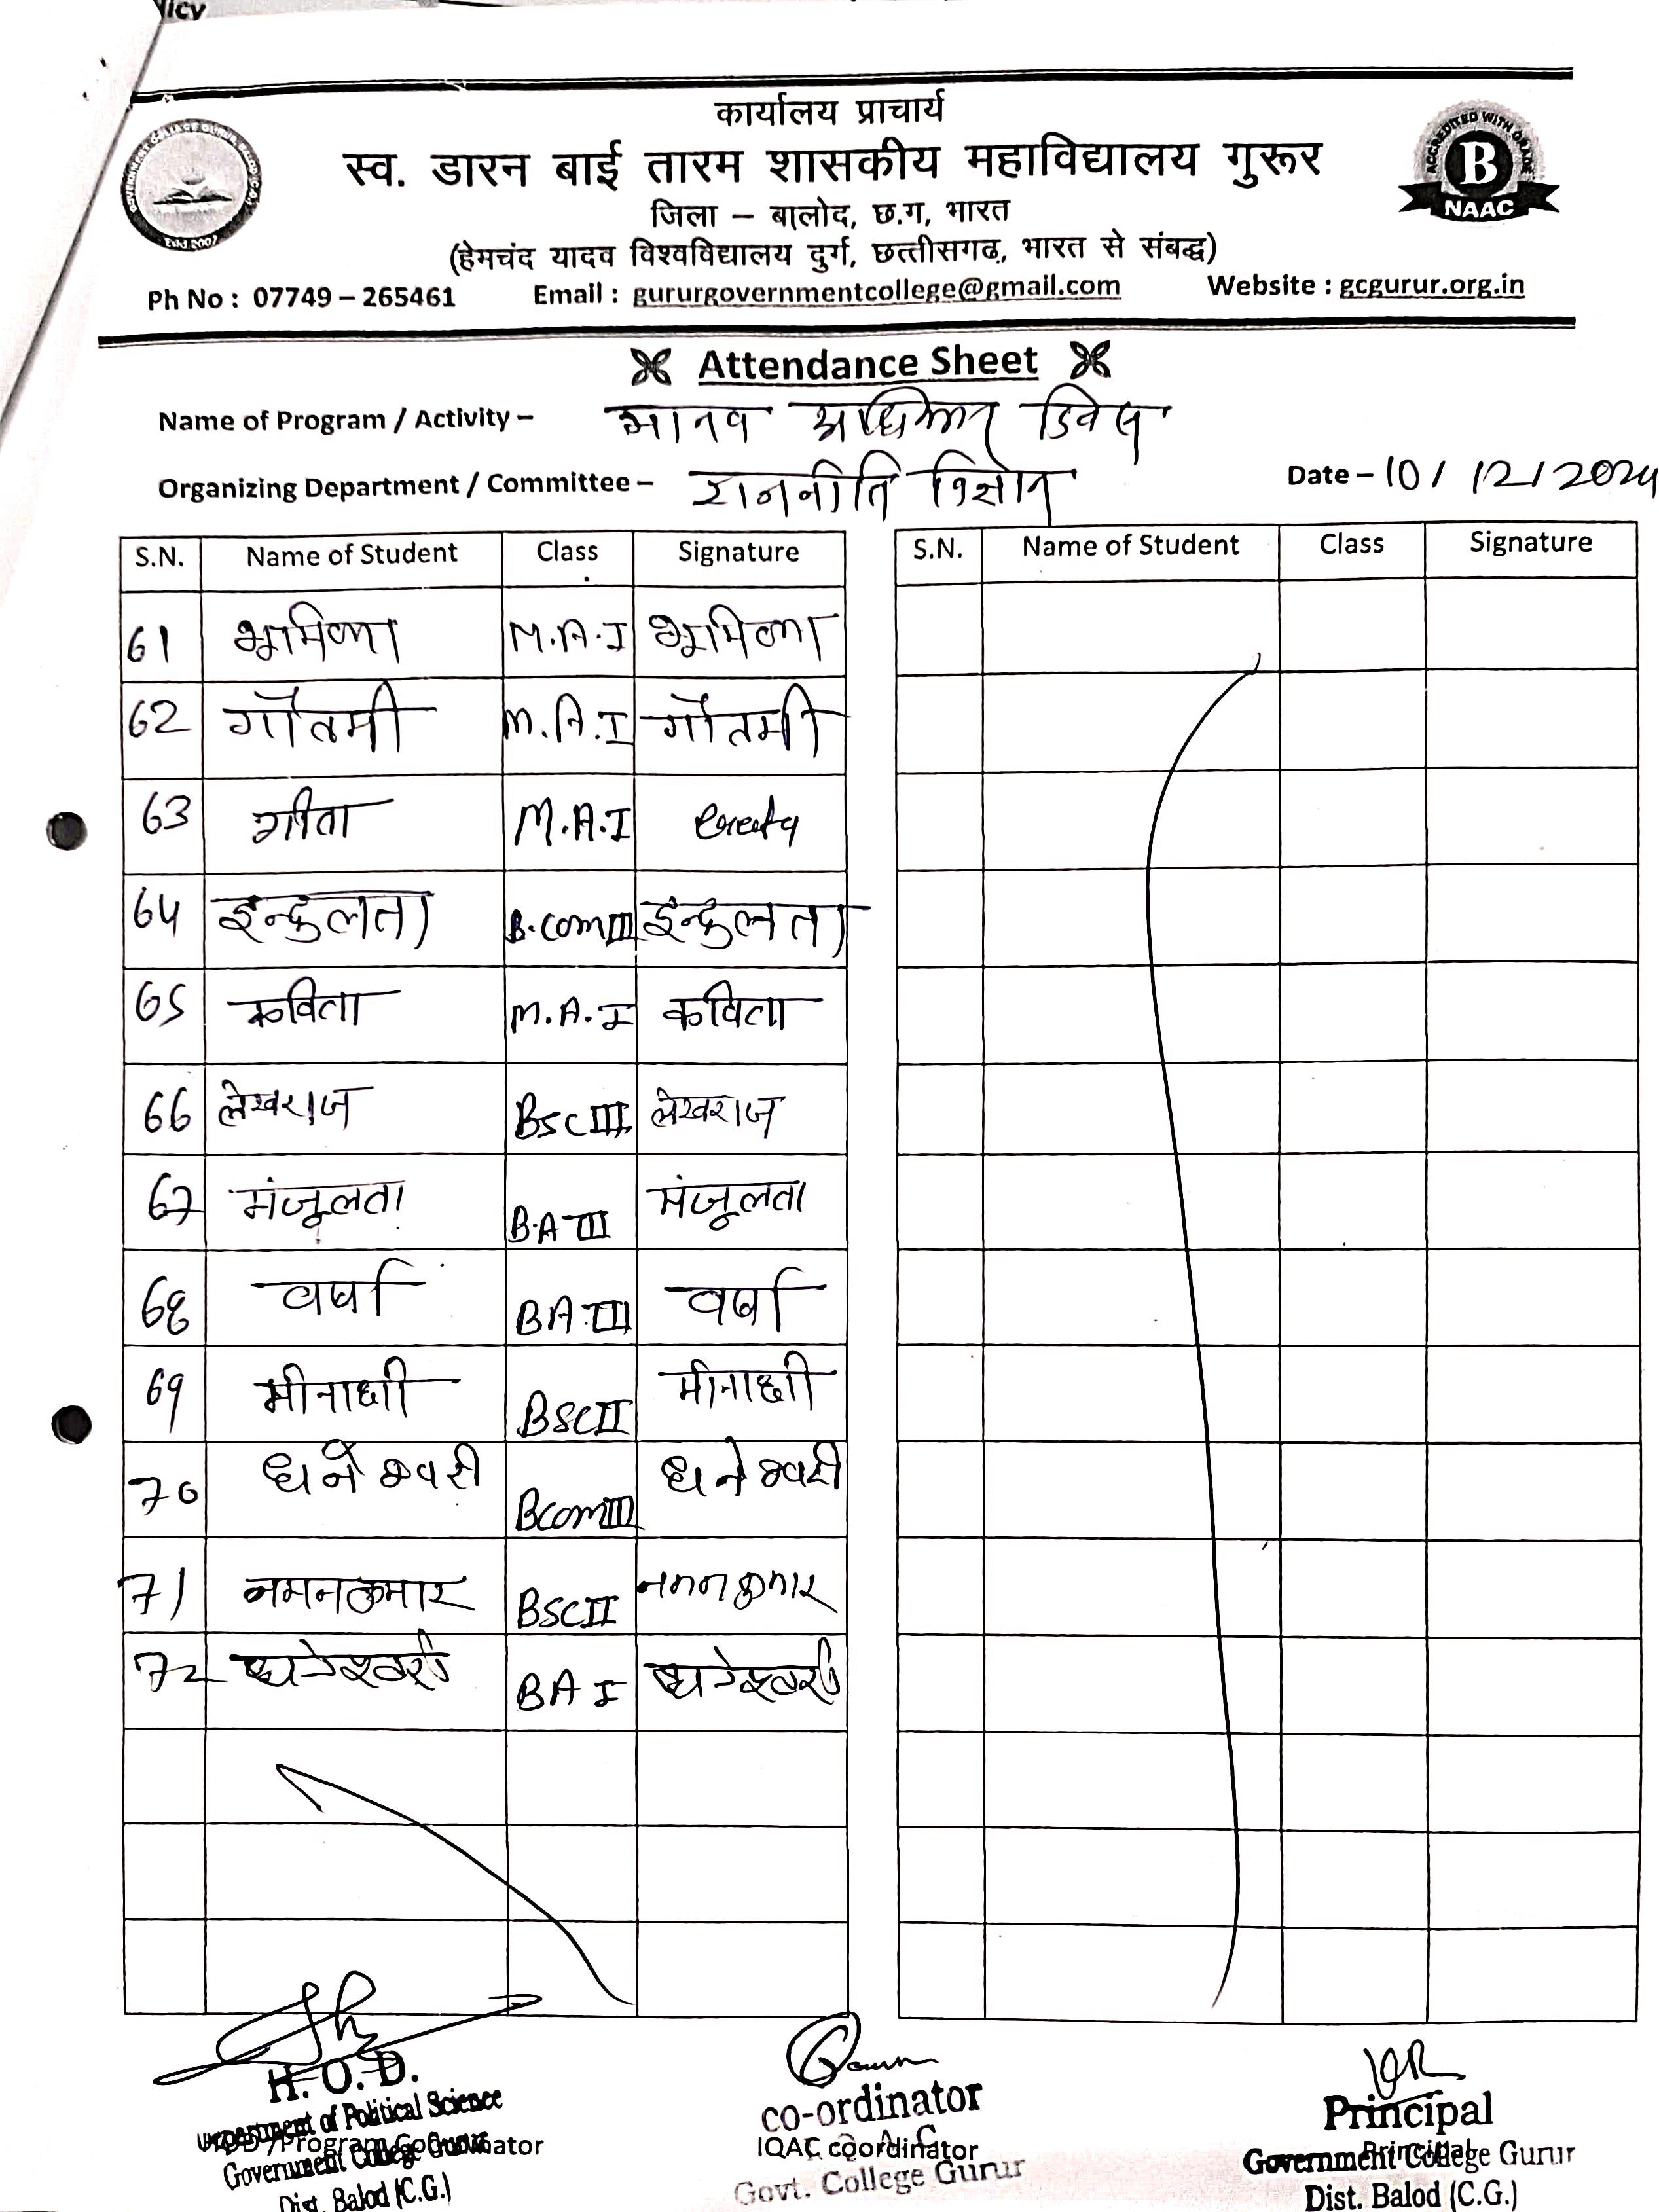 licy
कार्यालय प्राचार्य
स्व. डारन बाई तारम शासकीय महाविद्यालय गुरूर
जिला – बालोद, छ.ग, भारत
(हेमचंद यादव विश्वविद्यालय दुर्ग, छत्तीसगढ, भारत से संबद्ध)
Ph No : 07749 – 265461 Email : gururgovernmentcollege@gmail.com Website : gcgurur.org.in
Estd 2007
ACCREDITED WITH GRADE
B
NAAC
Attendance Sheet
Name of Program / Activity – मानव अधिकार दिवस
Organizing Department / Committee – राजनीति विज्ञान Date – 10/12/2024
S.N. Name of Student Class Signature S.N. Name of Student Class Signature
61 भूमिका M.A.I भूमिका
62 गौतमी M.A.I गौतमी
63 गीता M.A.I Geeta
64 इन्दुलता B.com III इन्दुलता
65 कविता M.A.I कविता
66 लेखराज BSC III लेखराज
67 मंजूलता B.A III मंजूलता
68 वर्षा BA III वर्षा
69 मीनाक्षी BSC II मीनाक्षी
70 धनेश्वरी Bcom III धनेश्वरी
71 नमनकुमार BSC II नमनकुमार
72 धनेश्वरी BA I धनेश्वरी
H.O.D.
Department of Political Science
HOD / Program Coordinator
Government College Gurur
Dist. Balod (C.G.)
co-ordinator
IQAC coordinator
Govt. College Gurur
Principal
Principal
Government College Gurur
Dist. Balod (C.G.)